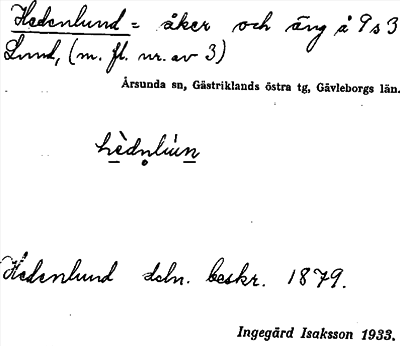 Hedenlund = åker och äng å 9 s 3
Lund, (m. fl. nr. av 3)
Årsunda sn, Gästriklands östra tg, Gävleborgs län.
hèdnlún
Hedenlund deln. beskr. 1879.
Ingegärd Isaksson 1933.